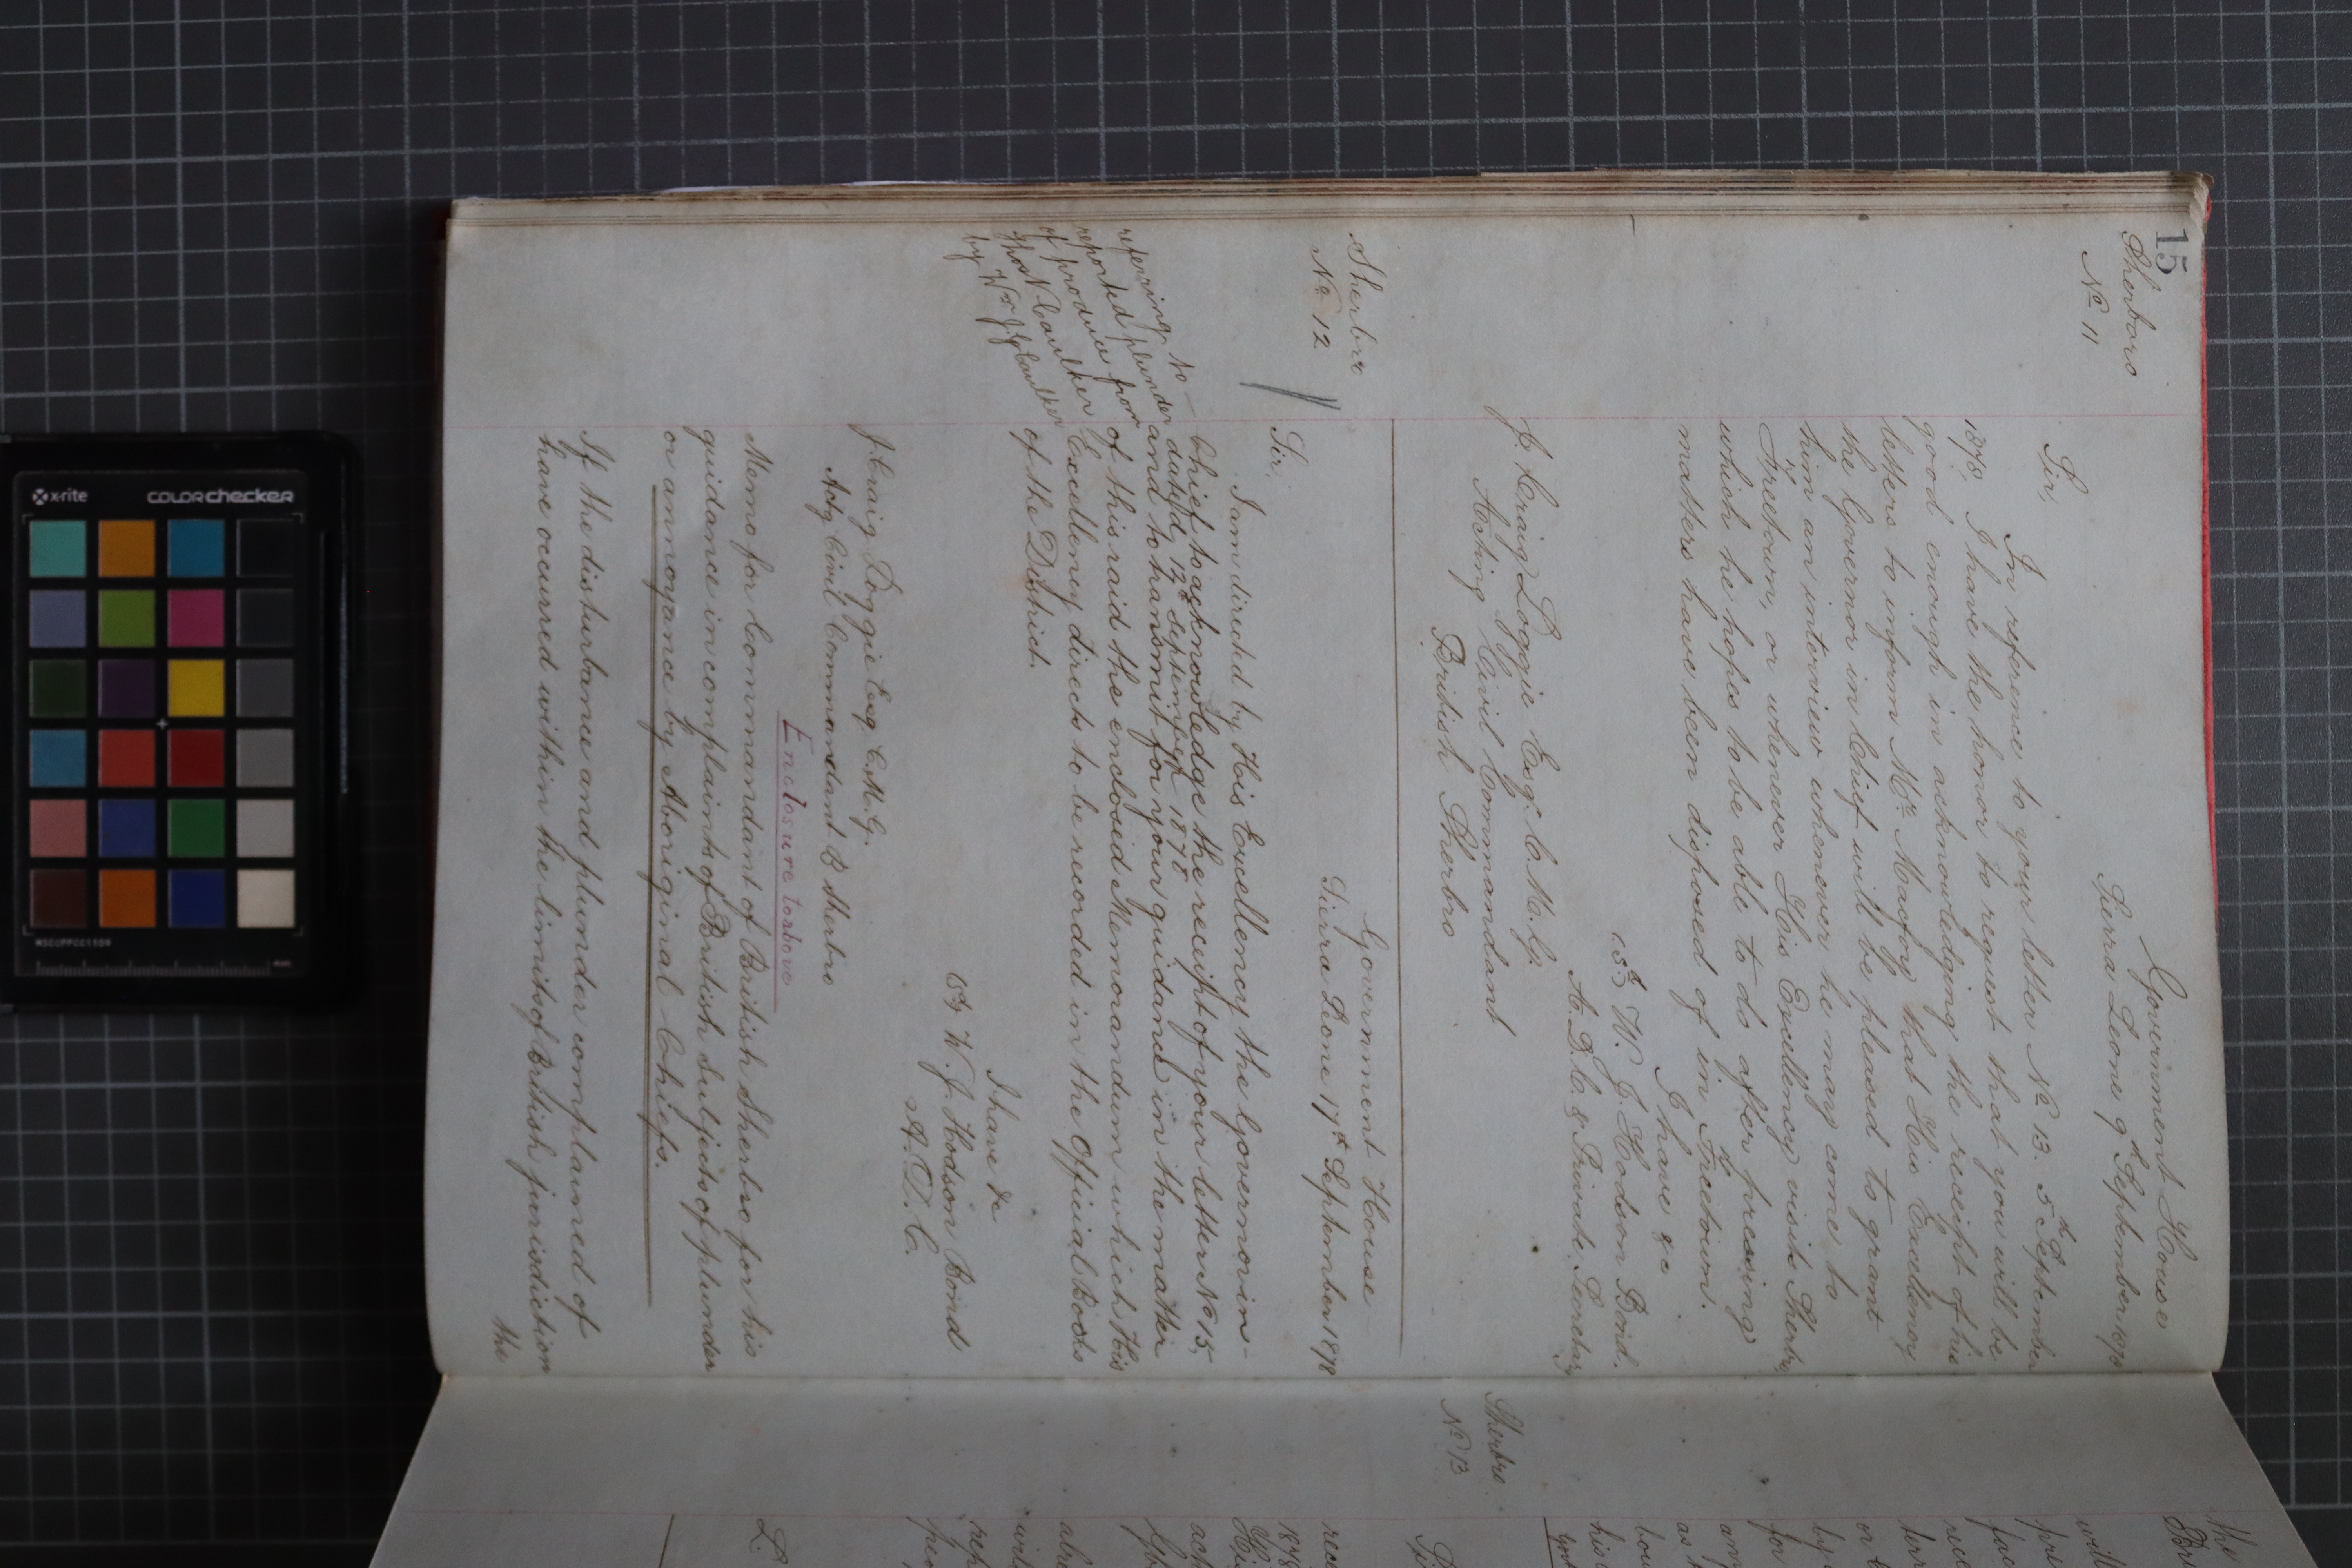 15
Sherboro
No. 11
Government House
Sierra Leone 9th September 1878
Sir,
In reference to your letter No. 13. 5th September
1878, I have the honor to request that you will be
good enough in acknowledging the receipt of his
letters to inform Mr. Macfoy that His Excellency
the Governor in Chief will be pleased to grant
him an interview whenever he may come to
Freetown, or whenever His Excellency visits Sherbro
which he hopes to be able to do after pressing
matters have been disposed of in Freetown.
I have &c
(sd) W. J. Hodson Bond.
A.D.C. & Private Secretary
J. Craig Loggie Esq. C.M.G.
Acting Civil Commandant
British Sherbro
Sherbro
No. 12
Government House
Sierra Leone 17th September 1878
Sir,
I am directed by His Excellency the Governor in-
Chief to acknowledge the receipt of your letter No 15,
dated 12th September 1878
and to transmit for your guidance in the matter
of this raid the enclosed Memorandum which His
Excellency directs to be recorded in the Official Books
of the District.
referring to
reported plunder
of produce from
Thos N Caulker
by Wm J G Caulker
I have &c
(sd) W. J. Hodson Bond
A.D.C.
J. Craig Loggie Esq C.M.G.
Actg Civil Commandant B Sherbro
Enclosure to above
Memo for Commandant of British Sherbro for his
guidance in complaints of British Subjects of plunder
or annoyance by Aboriginal Chiefs.
If the disturbance and plunder complained of
have occurred within the limits of British jurisdiction
the
Sherbro
No 13
the